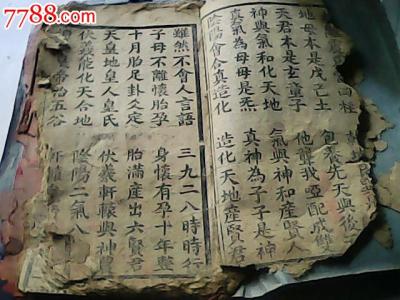 7788.com
四柱
地母本是戊己土 包養先天與後
天君本是玄童子 他聾我啞配成雙
神與氣和化天地 氣與神和產賢人
真氣為母母是炁 真神為子子是神
陰陽會合真造化 造化天地產賢君
雖然不會人言語 三九二八時時行
子母不離懷胎孕 身懷有孕十年整
十月胎足卦爻定 胎滿產出六賢君
天皇地皇人皇氏 伏羲軒轅與神農
伏羲能化天合地 陰陽二氣八
帝治五谷 軒轅